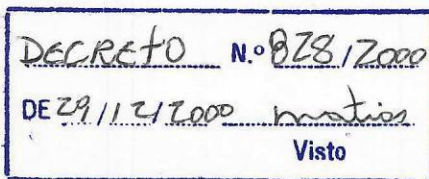 DECRETO N.º 828/2000
DE 29/12/2000 matias
Visto